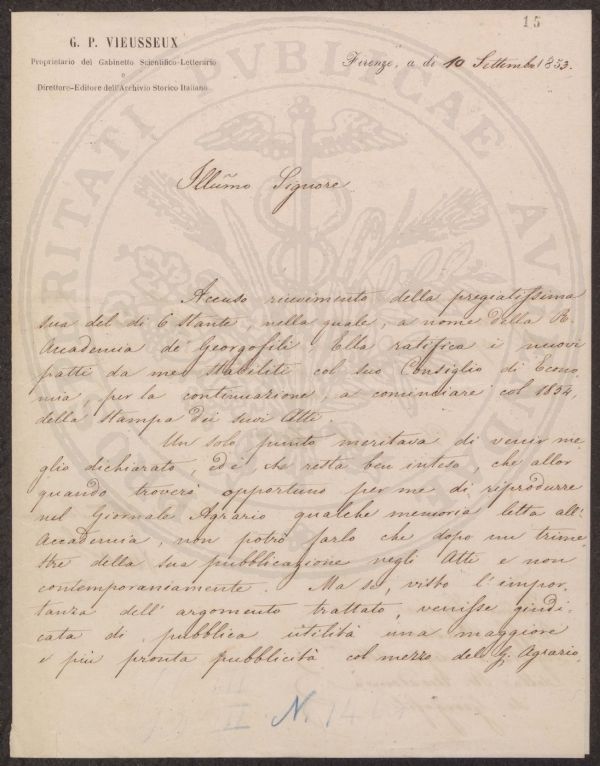 15
G. P. VIEUSSEUX
Proprietario del Gabinetto Scientifico-Letterario
e
Direttore-Editore dell'Archivio Storico Italiano
Firenze, a di 10 Settembre 1853.
Illũmo Signore
Accuso ricevimento della pregiatissima
sua del di 6 stante, nella quale, a nome della R.
Accademia de' Georgofili, Ella ratifica i nuovi
patti da me stabiliti col suo Consiglio di Econo
mia, per la continuazione, a cominciare col 1854,
della stampa dei suoi Atti.
Un solo punto meritava di venir me
glio dichiarato, ed è che resta ben inteso, che allor
quando troverò opportuno per me di riprodurre
nel Giornale Agrario qualche memoria letta all'
Accademia, non potrò farlo che dopo un trime
stre della sua pubblicazione negli Atti e non
contemporaneamente. Ma se, visto l'impor
tanza dell'argomento trattato, venisse giudi
cata di pubblica utilità una maggiore
e più pronta pubblicità col mezzo del G. Agrario,
II N. 14